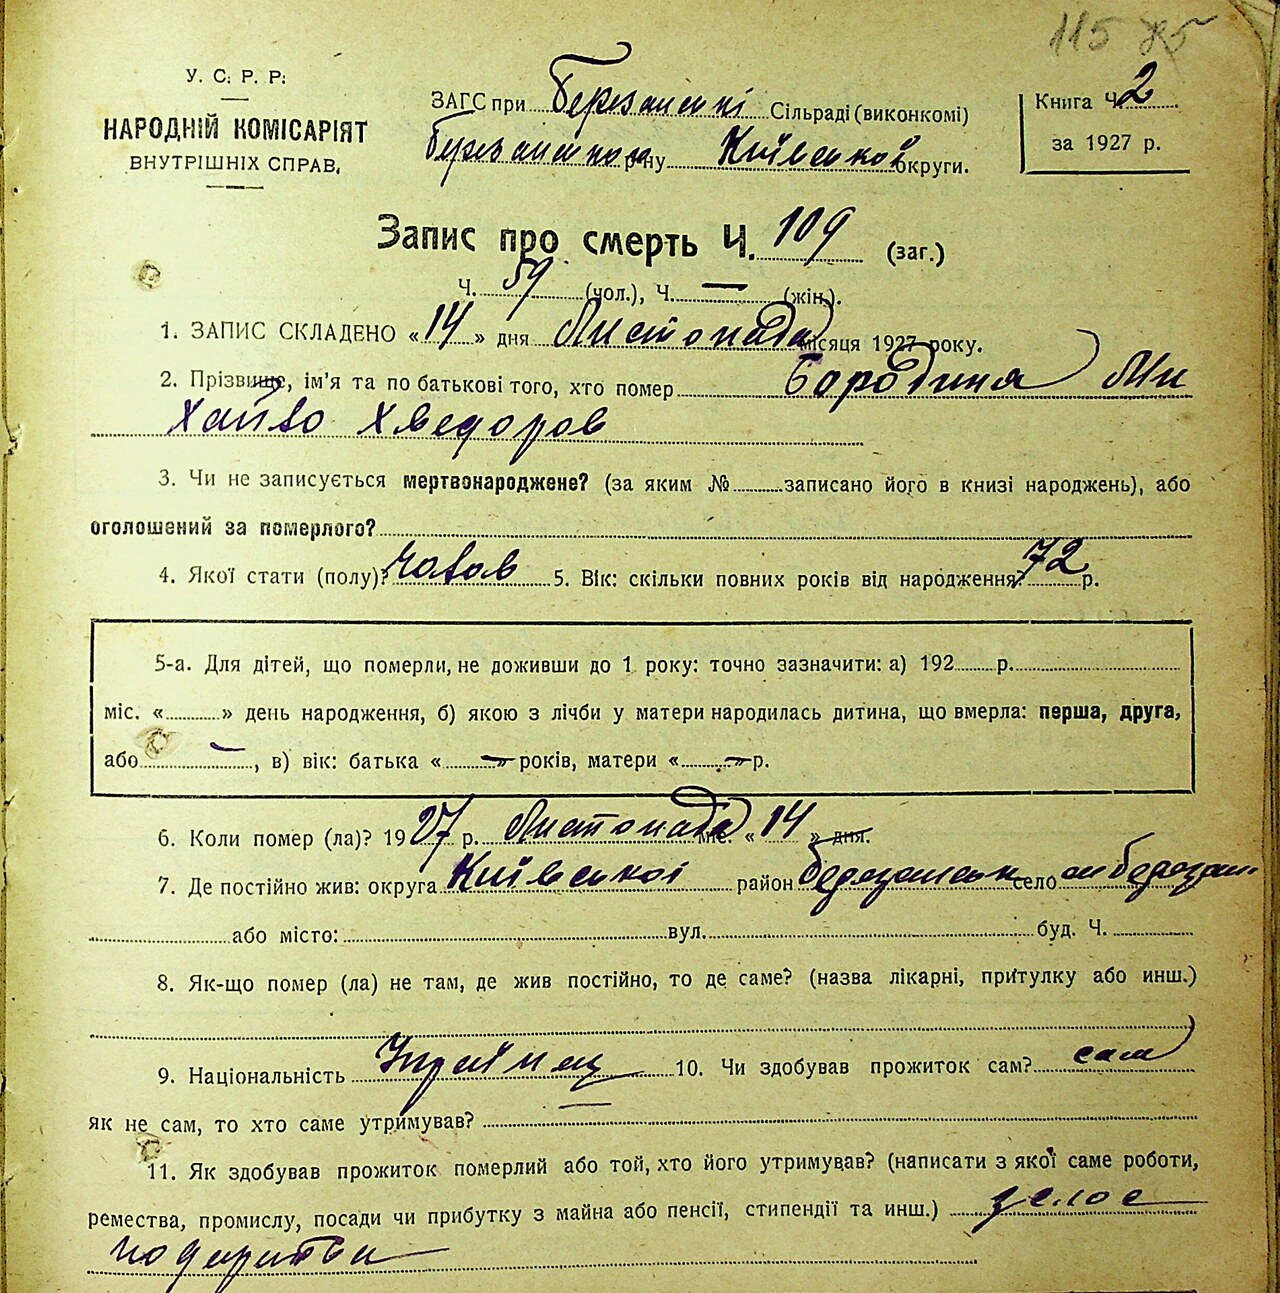 115
У. С. Р. Р.
НАРОДНІЙ КОМІСАРІЯТ
ВНУТРІШНІХ СПРАВ.
ЗАГС при Березанські Сільраді (виконкомі)
Березанськом р-ну Київської округи.
Книга Ч. 2
за 1927 р.
Запис про смерть Ч. 109 (заг.)
Ч. 59 (чол.), Ч. — (жін.).
1. ЗАПИС СКЛАДЕНО «14» дня Листопада місяця 1927 року.
2. Прізвище, ім'я та по батькові того, хто помер Бородина Ми
хайло Хведоров
3. Чи не записується мертвонароджене? (за яким № записано його в книзі народжень), або
оголошений за померлого?
4. Якої стати (полу)? чолов 5. Вік: скільки повних років від народження? 72 р.
5-а. Для дітей, що померли, не доживши до 1 року: точно зазначити: а) 192 р.
міс. « » день народження, б) якою з лічби у матери народилась дитина, що вмерла: перша, друга,
або — , в) вік: батька « — » років, матери « — » р.
6. Коли помер (ла)? 1927 р. Листопада міс. «14» дня.
7. Де постійно жив: округа Київської район Березанськ село м Березань
або місто: вул. буд. Ч.
8. Як-що помер (ла) не там, де жив постійно, то де саме? (назва лікарні, притулку або инш.)
9. Національність Украінец 10. Чи здобував прожиток сам? сам
як не сам, то хто саме утримував?
11. Як здобував прожиток померлий або той, хто його утримував? (написати з якої саме роботи,
ремества, промислу, посади чи прибутку з майна або пенсії, стипендії та инш.)